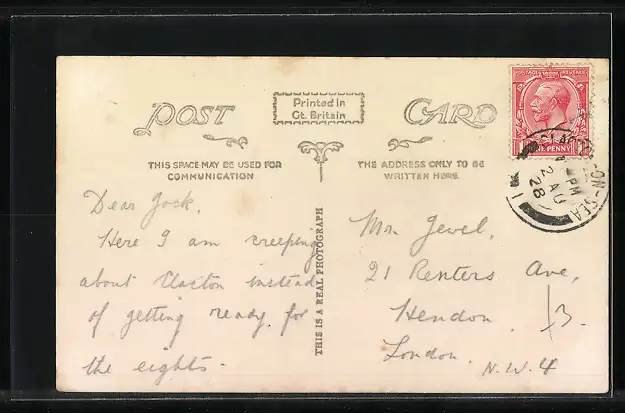 POST CARD
Printed in
Gt. Britain
THIS SPACE MAY BE USED FOR
COMMUNICATION
THE ADDRESS ONLY TO BE
WRITTEN HERE.
POSTAGE REVENUE
ONE PENNY
CLACTON-ON-SEA
PM
2 AU
28
Dear Jock,
Here I am creeping
about Clacton instead
of getting ready for
the eights.
THIS IS A REAL PHOTOGRAPH
Mr. Jevel,
21 Renters Ave,
Hendon.
London. N.W. 4